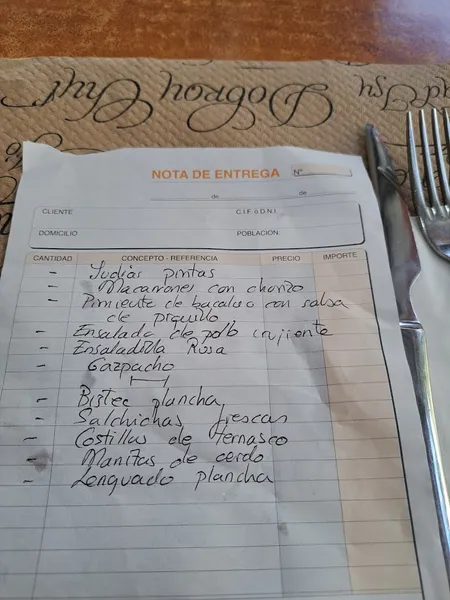 Dobroy Chyť
NOTA DE ENTREGA Nº
de de
CLIENTE C.I.F. ó D.N.I.
DOMICILIO POBLACIÓN
CANTIDAD CONCEPTO - REFERENCIA PRECIO IMPORTE
- Judias pintas
- Macarrones con chorizo
- Pimiente de bacalao con salsa
de piquillo
- Ensalada de pollo crujiente
- Ensaladilla Rusa
- Gazpacho
- Bistec plancha
- Salchichas frescas
- Costillas de ternasco
- Manitas de cerdo
- Lenguado plancha